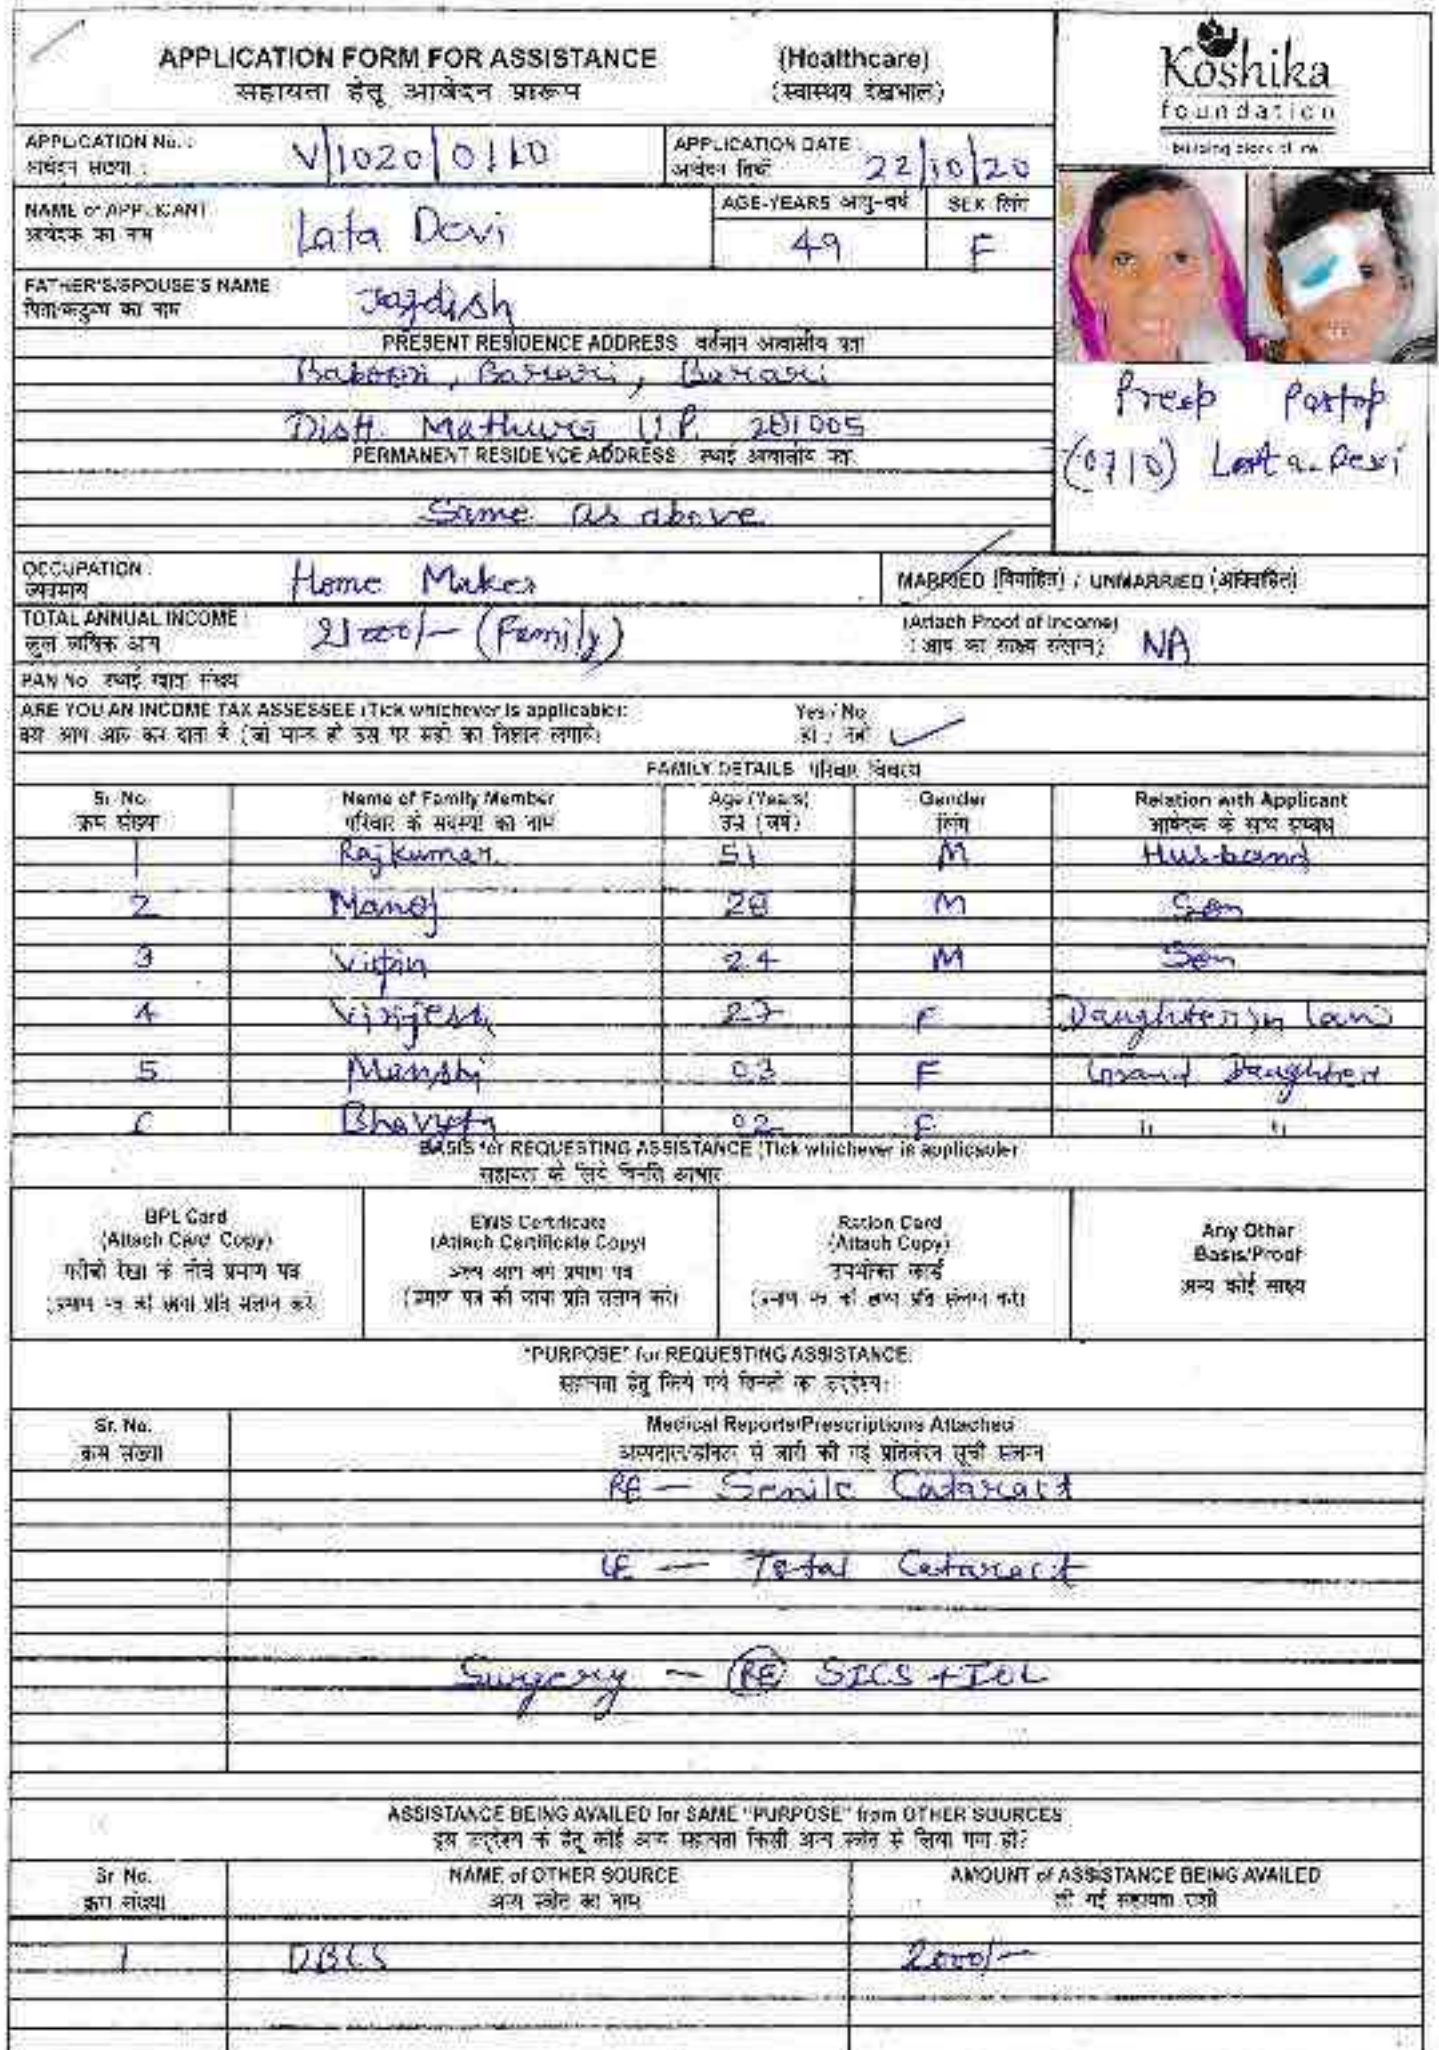 APPLICATION FORM FOR ASSISTANCE (Healthcare)
सहायता हेतू आवेदन प्रारूप (स्वास्थय देखभाल)
Koshika
foundation
APPLICATION No. :
आवेदन संख्या :
V/1020/0110
APPLICATION DATE :
आवेदन तिथी
22/10/20
NAME of APPLICANT :
आवेदक का नाम
Lata Devi
AGE-YEARS आयु-वर्ष
49
SEX लिंग
F
FATHER'S/SPOUSE'S NAME
Jagdish
PRESENT RESIDENCE ADDRESS वर्तमान आवासीय पता
Barari, Barari
Distt. Mathura U.P. 281005
PERMANENT RESIDENCE ADDRESS स्थाई आवासीय पता
Same as above
Preop Postop
(0710) Lata Devi
OCCUPATION :
व्यवसाय
Home Maker
MARRIED (विवाहित) / UNMARRIED (अविवाहित)
TOTAL ANNUAL INCOME :
कुल वार्षिक आय
21000/- (Family)
(Attach Proof of Income)
(आय का साक्ष्य संलग्न)
NA
PAN No स्थाई खाता संख्या
ARE YOU AN INCOME TAX ASSESSEE (Tick whichever is applicable):
Yes / No
क्या आप आय कर दाता है (जो मान्य हो उस पर सही का निशान लगाये)
हां / नहीं
FAMILY DETAILS परिवार विवरण
Sr. No. Name of Family Member Age (Years) Gender Relation with Applicant
क्रम संख्या परिवार के सदस्यों का नाम उम्र (वर्ष) लिंग आवेदक के साथ सम्बंध
1 Rajkumar 51 M Husband
2 Manoj 28 M Son
3 Vipin 24 M Son
4 Virjesh 27 F Daughter in law
5 Manshi 03 F Grand Daughter
6 02 F " "
BASIS for REQUESTING ASSISTANCE (Tick whichever is applicable)
सहायता के लिये विनति आधार
BPL Card
(Attach Card Copy)
गरीबी रेखा के नीचे प्रमाण पत्र
(प्रमाण पत्र की छाया प्रति संलग्न करें)
EWS Certificate
(Attach Certificate Copy)
अल्प आय वर्ग प्रमाण पत्र
(प्रमाण पत्र की छाया प्रति संलग्न करें)
Ration Card
(Attach Copy)
उपभोक्ता कार्ड
(प्रमाण पत्र की छाया प्रति संलग्न करें)
Any Other
Basis/Proof
अन्य कोई साक्ष्य
"PURPOSE" for REQUESTING ASSISTANCE:
सहायता हेतु किये गये विनती का उद्देश्य:
Sr. No. Medical Reports/Prescriptions Attached
क्रम संख्या अस्पताल/डॉक्टर से जारी की गई प्रतिवेदन सूची संलग्न
RE - Senile Cataract
LE - Total Cataract
Surgery - RE SICS + IOL
ASSISTANCE BEING AVAILED for SAME "PURPOSE" from OTHER SOURCES
इस उद्देश्य के हेतू कोई अन्य सहायता किसी अन्य स्त्रोत से लिया गया हो?
Sr. No. NAME of OTHER SOURCE AMOUNT of ASSISTANCE BEING AVAILED
क्रम संख्या अन्य स्त्रोत का नाम ली गई सहायता राशी
1 DBCS 2000/-